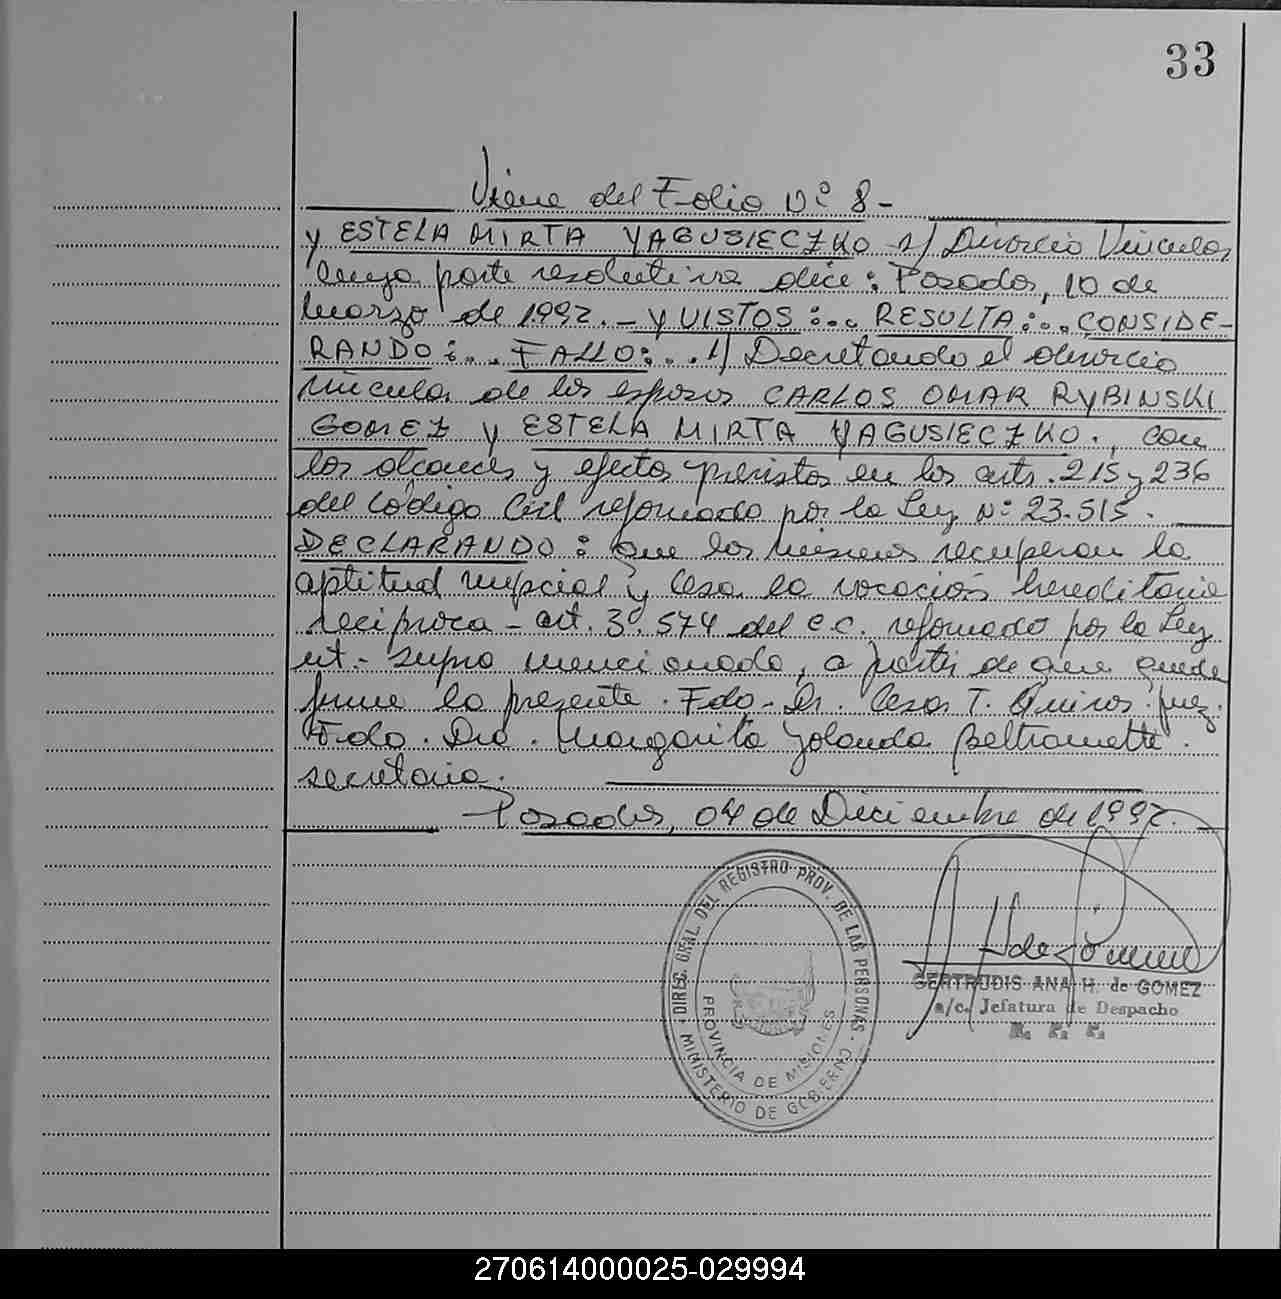 33
Viene del Folio Nº 8 -
y ESTELA MIRTA YAGUSIECZKO s/ Divorcio Vincular
cuya parte resolutiva dice: Posadas, 10 de
marzo de 1992. - Y VISTOS:... RESULTA:... CONSIDE-
RANDO:... FALLO:... 1) Decretando el divorcio
vincular de los esposos CARLOS OMAR RYBINSKI
GOMEZ y ESTELA MIRTA YAGUSIECZKO, con
los alcances y efectos previstos en los arts. 215 y 236
del Código Civil reformado por la Ley Nº 23.515.
DECLARANDO: que los mismos recuperan la
aptitud nupcial y cesa la vocación hereditaria
reciproca - art. 3º.574 del C.C. reformado por la Ley
ut - supra mencionada, a partir de que quede
firme la presente. Fdo. Dr. Cesar T. Quiros. juez.
Fdo. Dra. Margarita Yolanda Beltrametti.
secretaria.
Posadas, 04 de Diciembre de 1992.
DIREC. GRAL. DEL REGISTRO PROV. DE LAS PERSONAS
MINISTERIO DE GOBIERNO
PROVINCIA DE MISIONES
H de Gomez
GERTRUDIS ANA H. de GOMEZ
a/c. Jefatura de Despacho
270614000025-029994